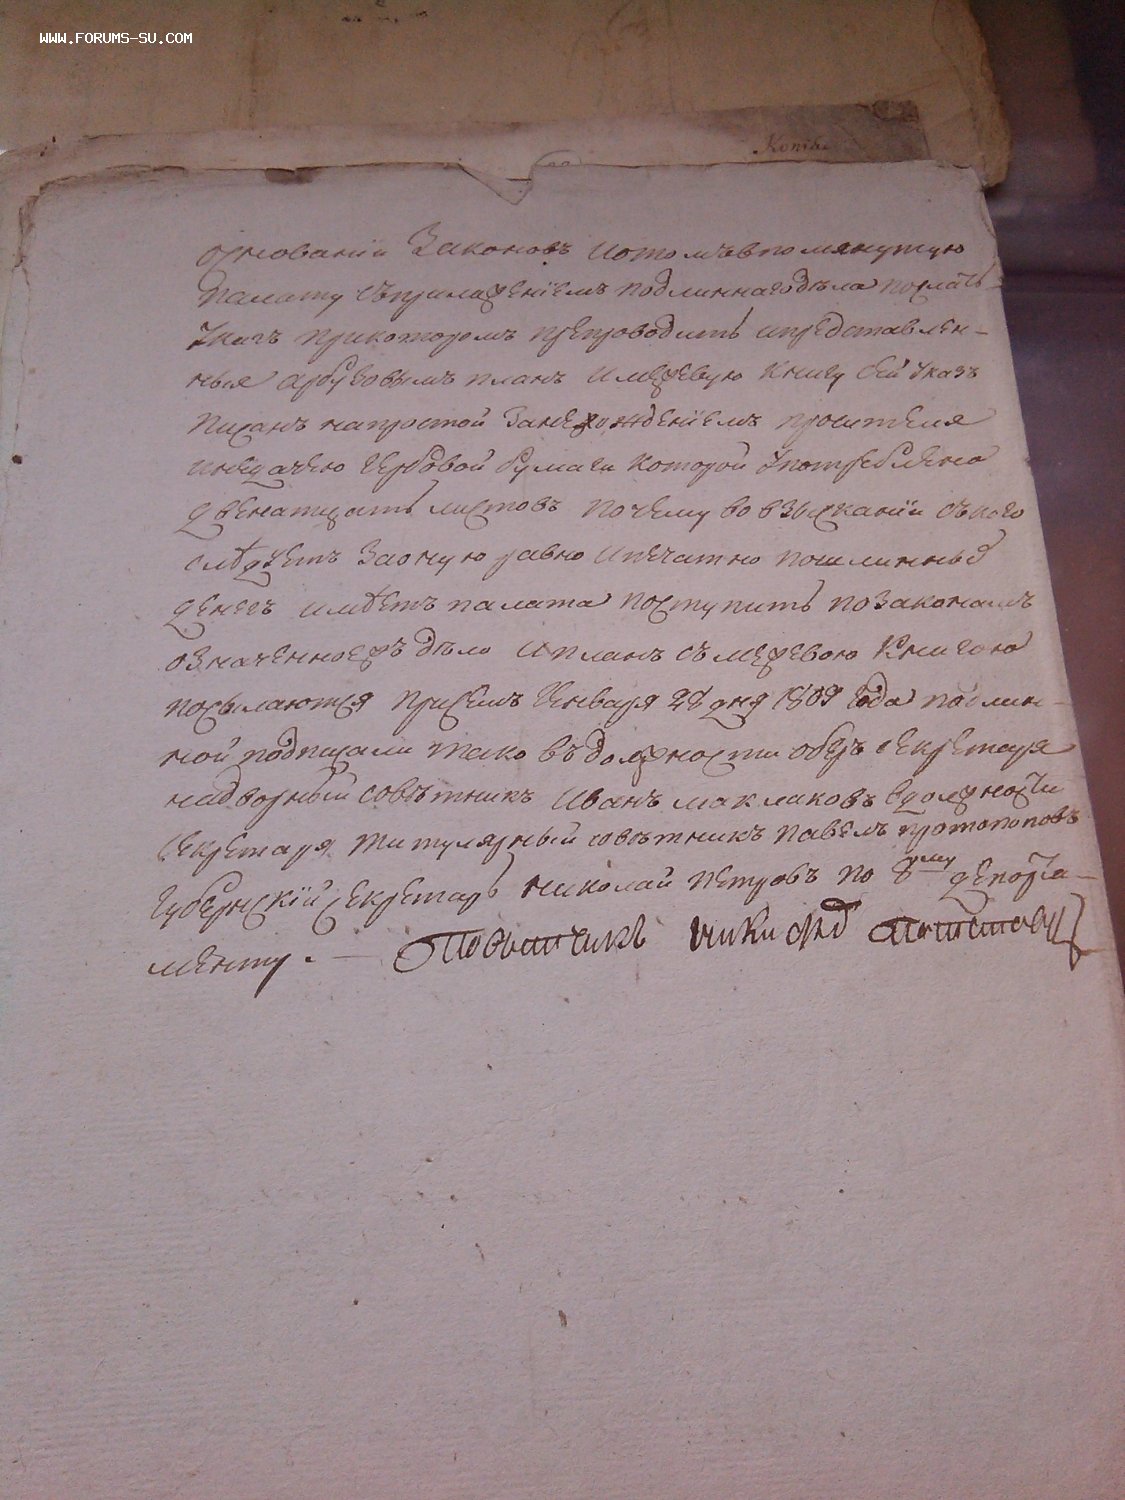 WWW.FORUMS-SU.COM
Копія
основаніи Законовъ и отомъ впомянутую
палату съприложеніемъ подлиннаго дѣла послать
Указъ прикоторомъ препроводить ипредставлен-
ныя Арбузовымъ планъ и межевую Книгу сей Указъ
писанъ напростой Занехожденіемъ просителя
инедачею гербовой бумаги которой Употреблено
двенатцать листовъ почему во взысканіи съкого
слѣдуетъ Заоную равно ипечатно пошлинныхъ
денегъ имѣетъ палата поступить позаконамъ
означенноежъ дѣло ипланъ съ межевою Книгою
посылаются присемъ Генваря 28 дня 1809 года подлин-
ной подписали тако въ должности оберъ секретаря
надворный совѣтникъ Иванъ маклаковъ вдолжности
секретаря титулярный совѣтникъ павелъ протопоповъ
Губернскій секретарь николай петровъ по 8му депорта-
менту. — Повытчикъ